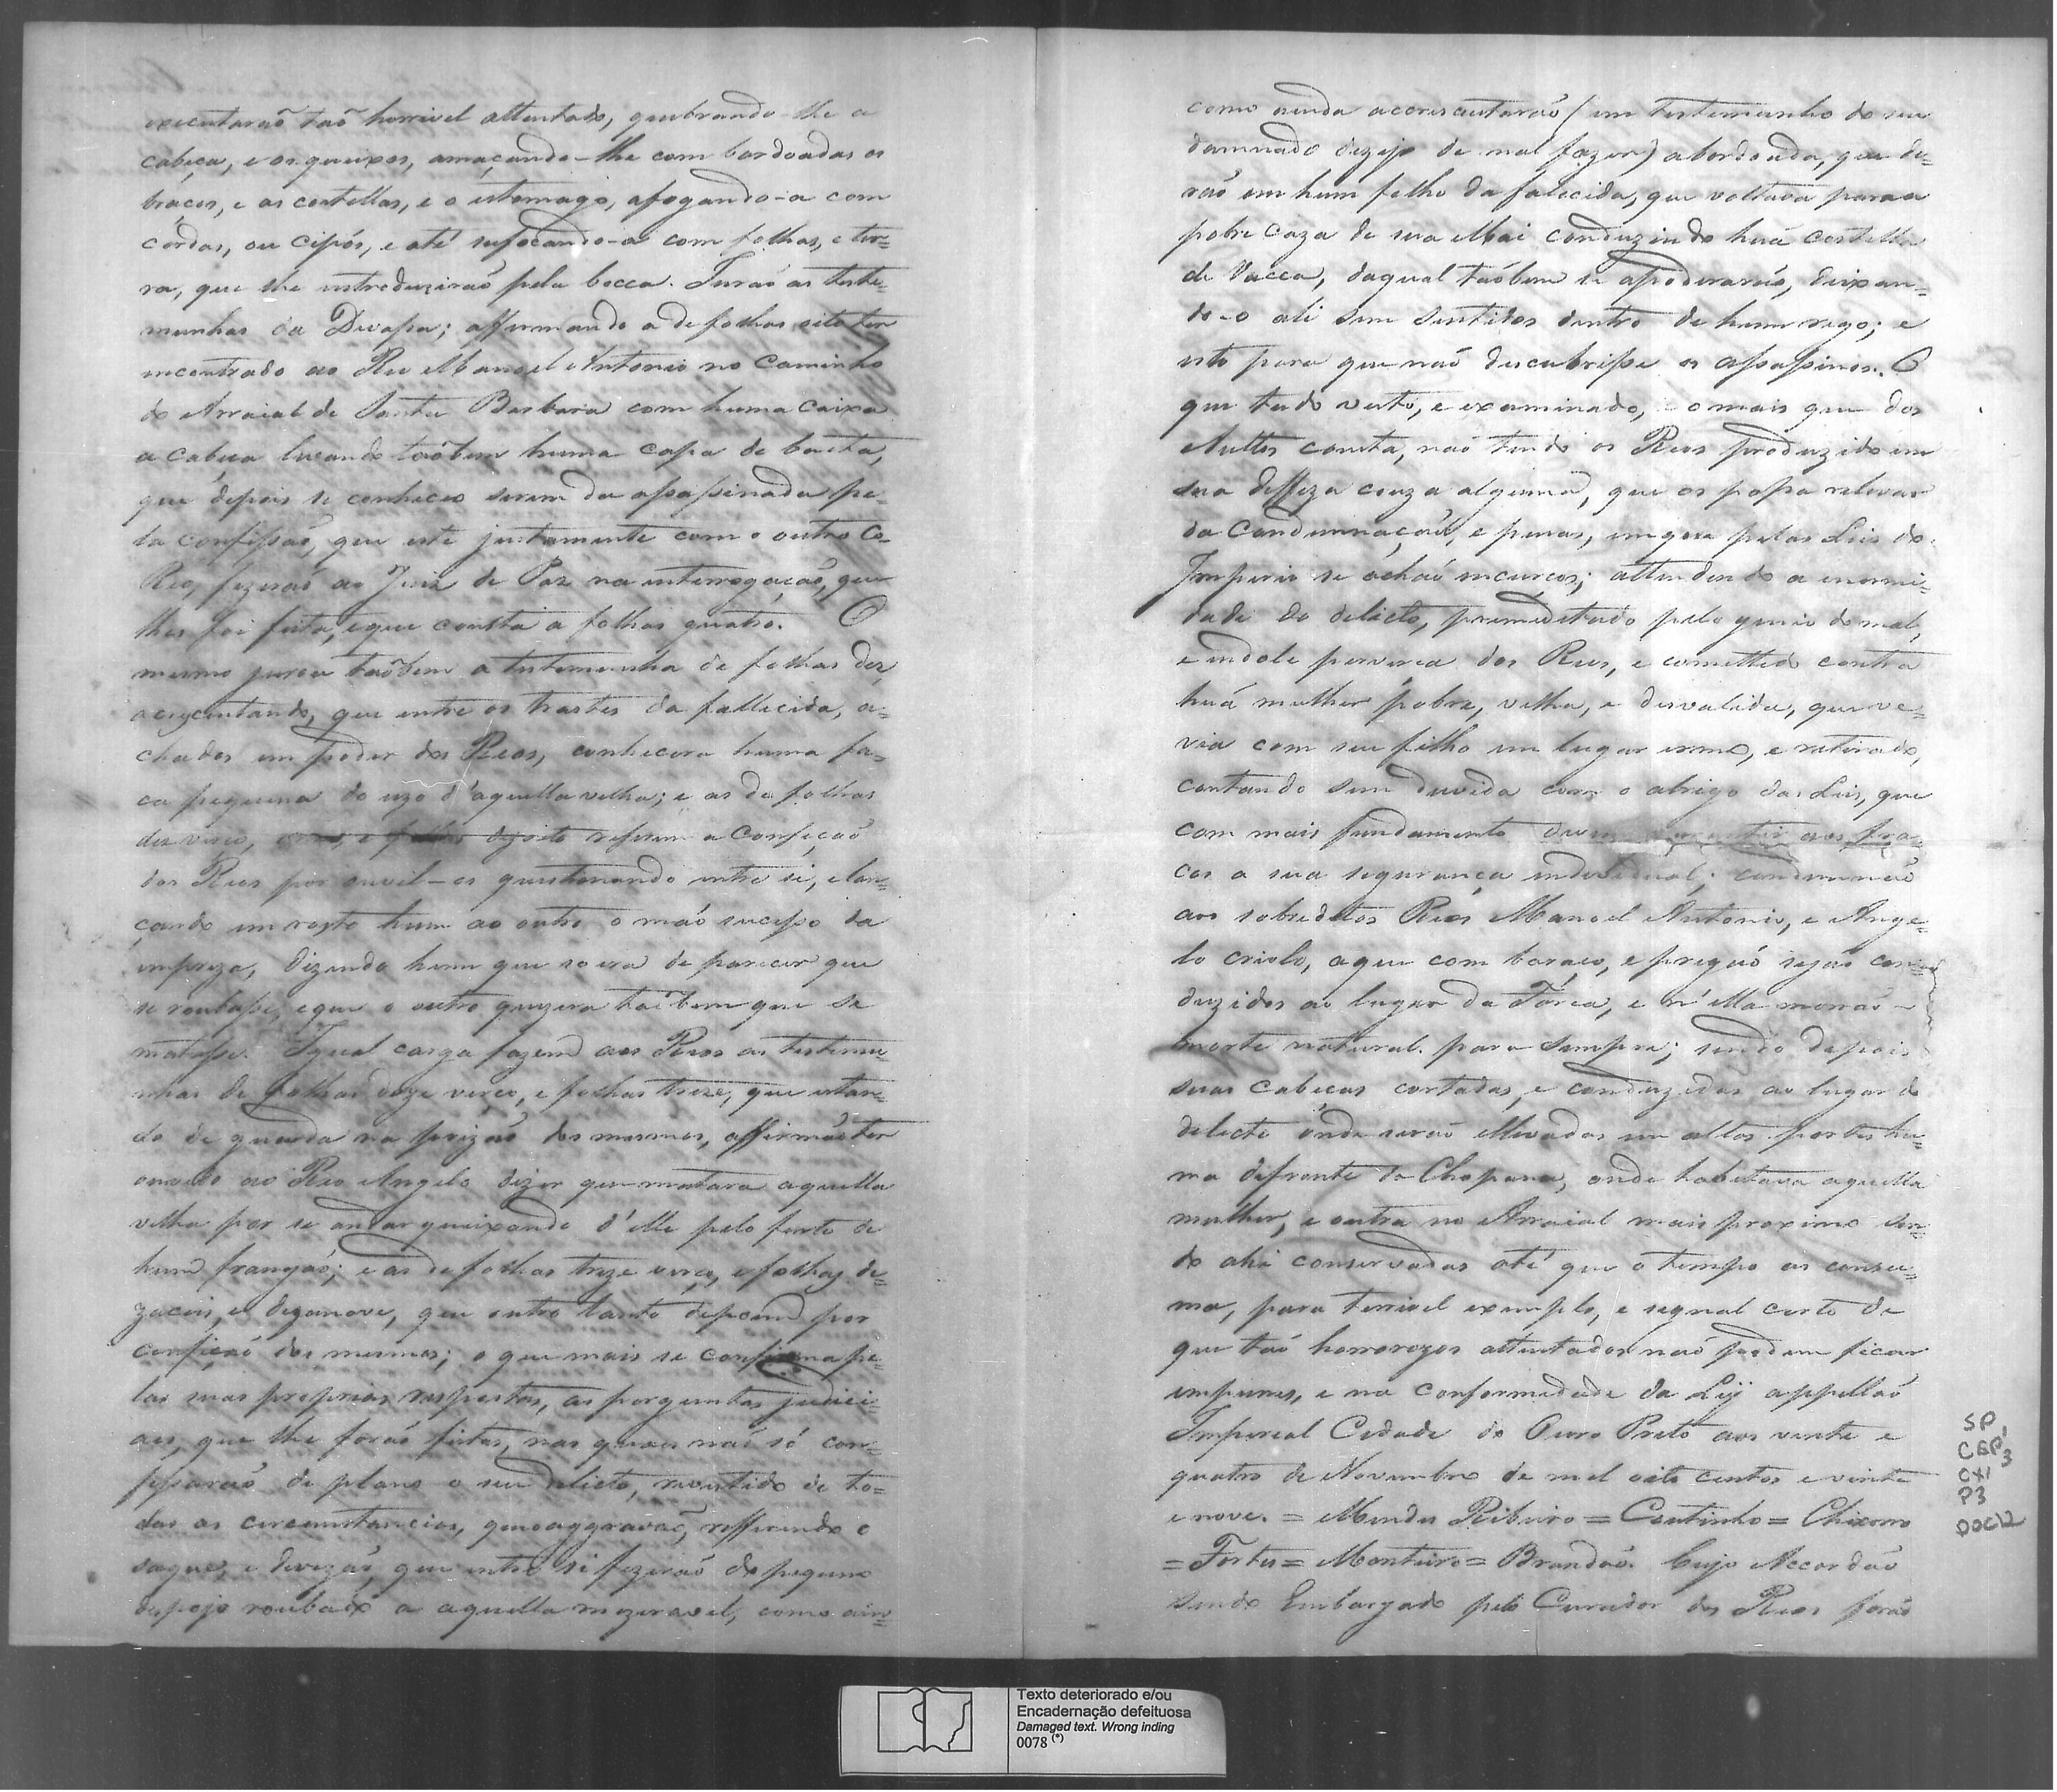 executaraõ taõ horrivel attentado, quebrando-lhe a
cabeça, e os queixos, amaçando-lhe com bordoadas os
braços, e as costellas, e o estomago, afogando-a com
cordas, ou cipós, e até sufocando-a com folhas, e ter=
ra, que lhe introduziraõ pela bocca. Juraõ as teste=
munhas da Devaça; affirmando a de folhas oito ter
encontrado ao Reo Manoel Antonio no Caminho
do Arraial de Santa Barbara com huma caixa
a cabeça levando taõbem huma capa de baeta,
que depois se conheceo serem da assassinada pe=
la confissaõ, que este juntamente com o outro Co=
Reo, fizeraõ ao Juiz de Paz na interrogaçaõ, que
lhes foi feita, e que consta a folhas quatro. O
mesmo jurou taõbem a testemunha de folhas dez,
acrescentando, que entre os trastes da fallecida, a=
chados em poder dos Reos, conhecera huma fa=
ca pequena do uzo d'aquella velha; e as de folhas
dez verço, e folhas dezoito referem a Confiçaõ
dos Reos por ouvil-os questionando entre si, e lan=
çando em rosto hum ao outro o máo sucesso da
empreza, dizendo hum que so era de parecer que
se roubasse, e que o outro quizera taõbem que se
matasse. Igual carga fazem aos Reos as testemu=
nhas de folhas doze verço, e folhas treze, que estan=
do de guarda na prizaõ dos mesmos, affirmaõ ter
ouvido ao Reo Angelo dizer que matara aquella
velha por se andar queixando d'elle pelo furto de
hum frangaõ; e as de folhas treze verço, e folhas de=
zaceis, e dezanove, que outro tanto depoem por
confiçaõ dos mesmos; o que mais se confirma pe=
las suas proprias respostas, as perguntas judici=
aes, que lhe foraõ feitas, nas quaes naõ só con=
fessaraõ de plano o seu delicto, revestido de to=
das as circunstancias, que o aggravaõ, refferindo o
saque, e divizaõ, que entre si fizeraõ do pequeno
espojo roubado a aquella mizeravel, como ain=
como ainda accrescentaraõ (em testemunho do seu
damnado dezejo de mal fazer) a bordoada, que de=
raõ em hum filho da falecida, que voltava para a
pobre caza de sua Mai conduzindo huã costella
de Vacca, da qual taõbem se apoderaraõ, deixan=
do-o ali sem sentidos dentro de hum rego; e
isto para que naõ descubrisse os assassinos. O
que tudo visto, e examinado, e o mais que dos
Auttos consta, naõ tendo os Reos produzido em
sua deffeza couza alguma, que os possa relevar
da Condemnaçaõ, e penas, em que pelas Leis do
Imperio se achaõ incurços; attendendo a enormi=
dade do delicto, premeditado pelo genio do mal,
e indole perverça dos Reos, e comettido contra
huã mulher pobre, velha, e desvalida, que ve=
via com seu filho em lugar ermo, e retirado,
contando sem duvida com o abrigo das Leis, que
com mais fundamento devem garantir aos fra=
cos a sua segurança individual; condemnaõ
aos sobreditos Reos Manoel Antonio, e Ange=
lo criolo, a que com baraço, e pregaõ sejaõ con=
duzidos ao lugar da Forca, e n'ella morraõ
morte natural para sempre; sendo depois
suas cabeças cortadas, e conduzidas ao lugar do
delicto onde seraõ ellevadas em altos postes hu=
ma defronte da Chopana, onde habitava aquella
mulher, e outra no Arraial mais proximo sen=
do ahi conservadas até que o tempo as consu=
ma, para terrivel exemplo, e signal certo de
que taõ horrorozos attentados naõ podem ficar
impunes, e na conformidade da Ley appellaõ
Imperial Cidade do Ouro Preto aos vinte e
quatro de Novembro de mil oito centos e vinte
e nove. = Mendes Ribeiro = Coutinho = Chixorro
= Fortes = Monteiro = Brandaõ. Cujo Accordaõ
sendo Embargado pelo Curador dos Reos foraõ
SP,
CGP 3
CX1
P3
DOC12
Texto deteriorado e/ou
Encadernação defeituosa
Damaged text. Wrong inding
0078 (*)